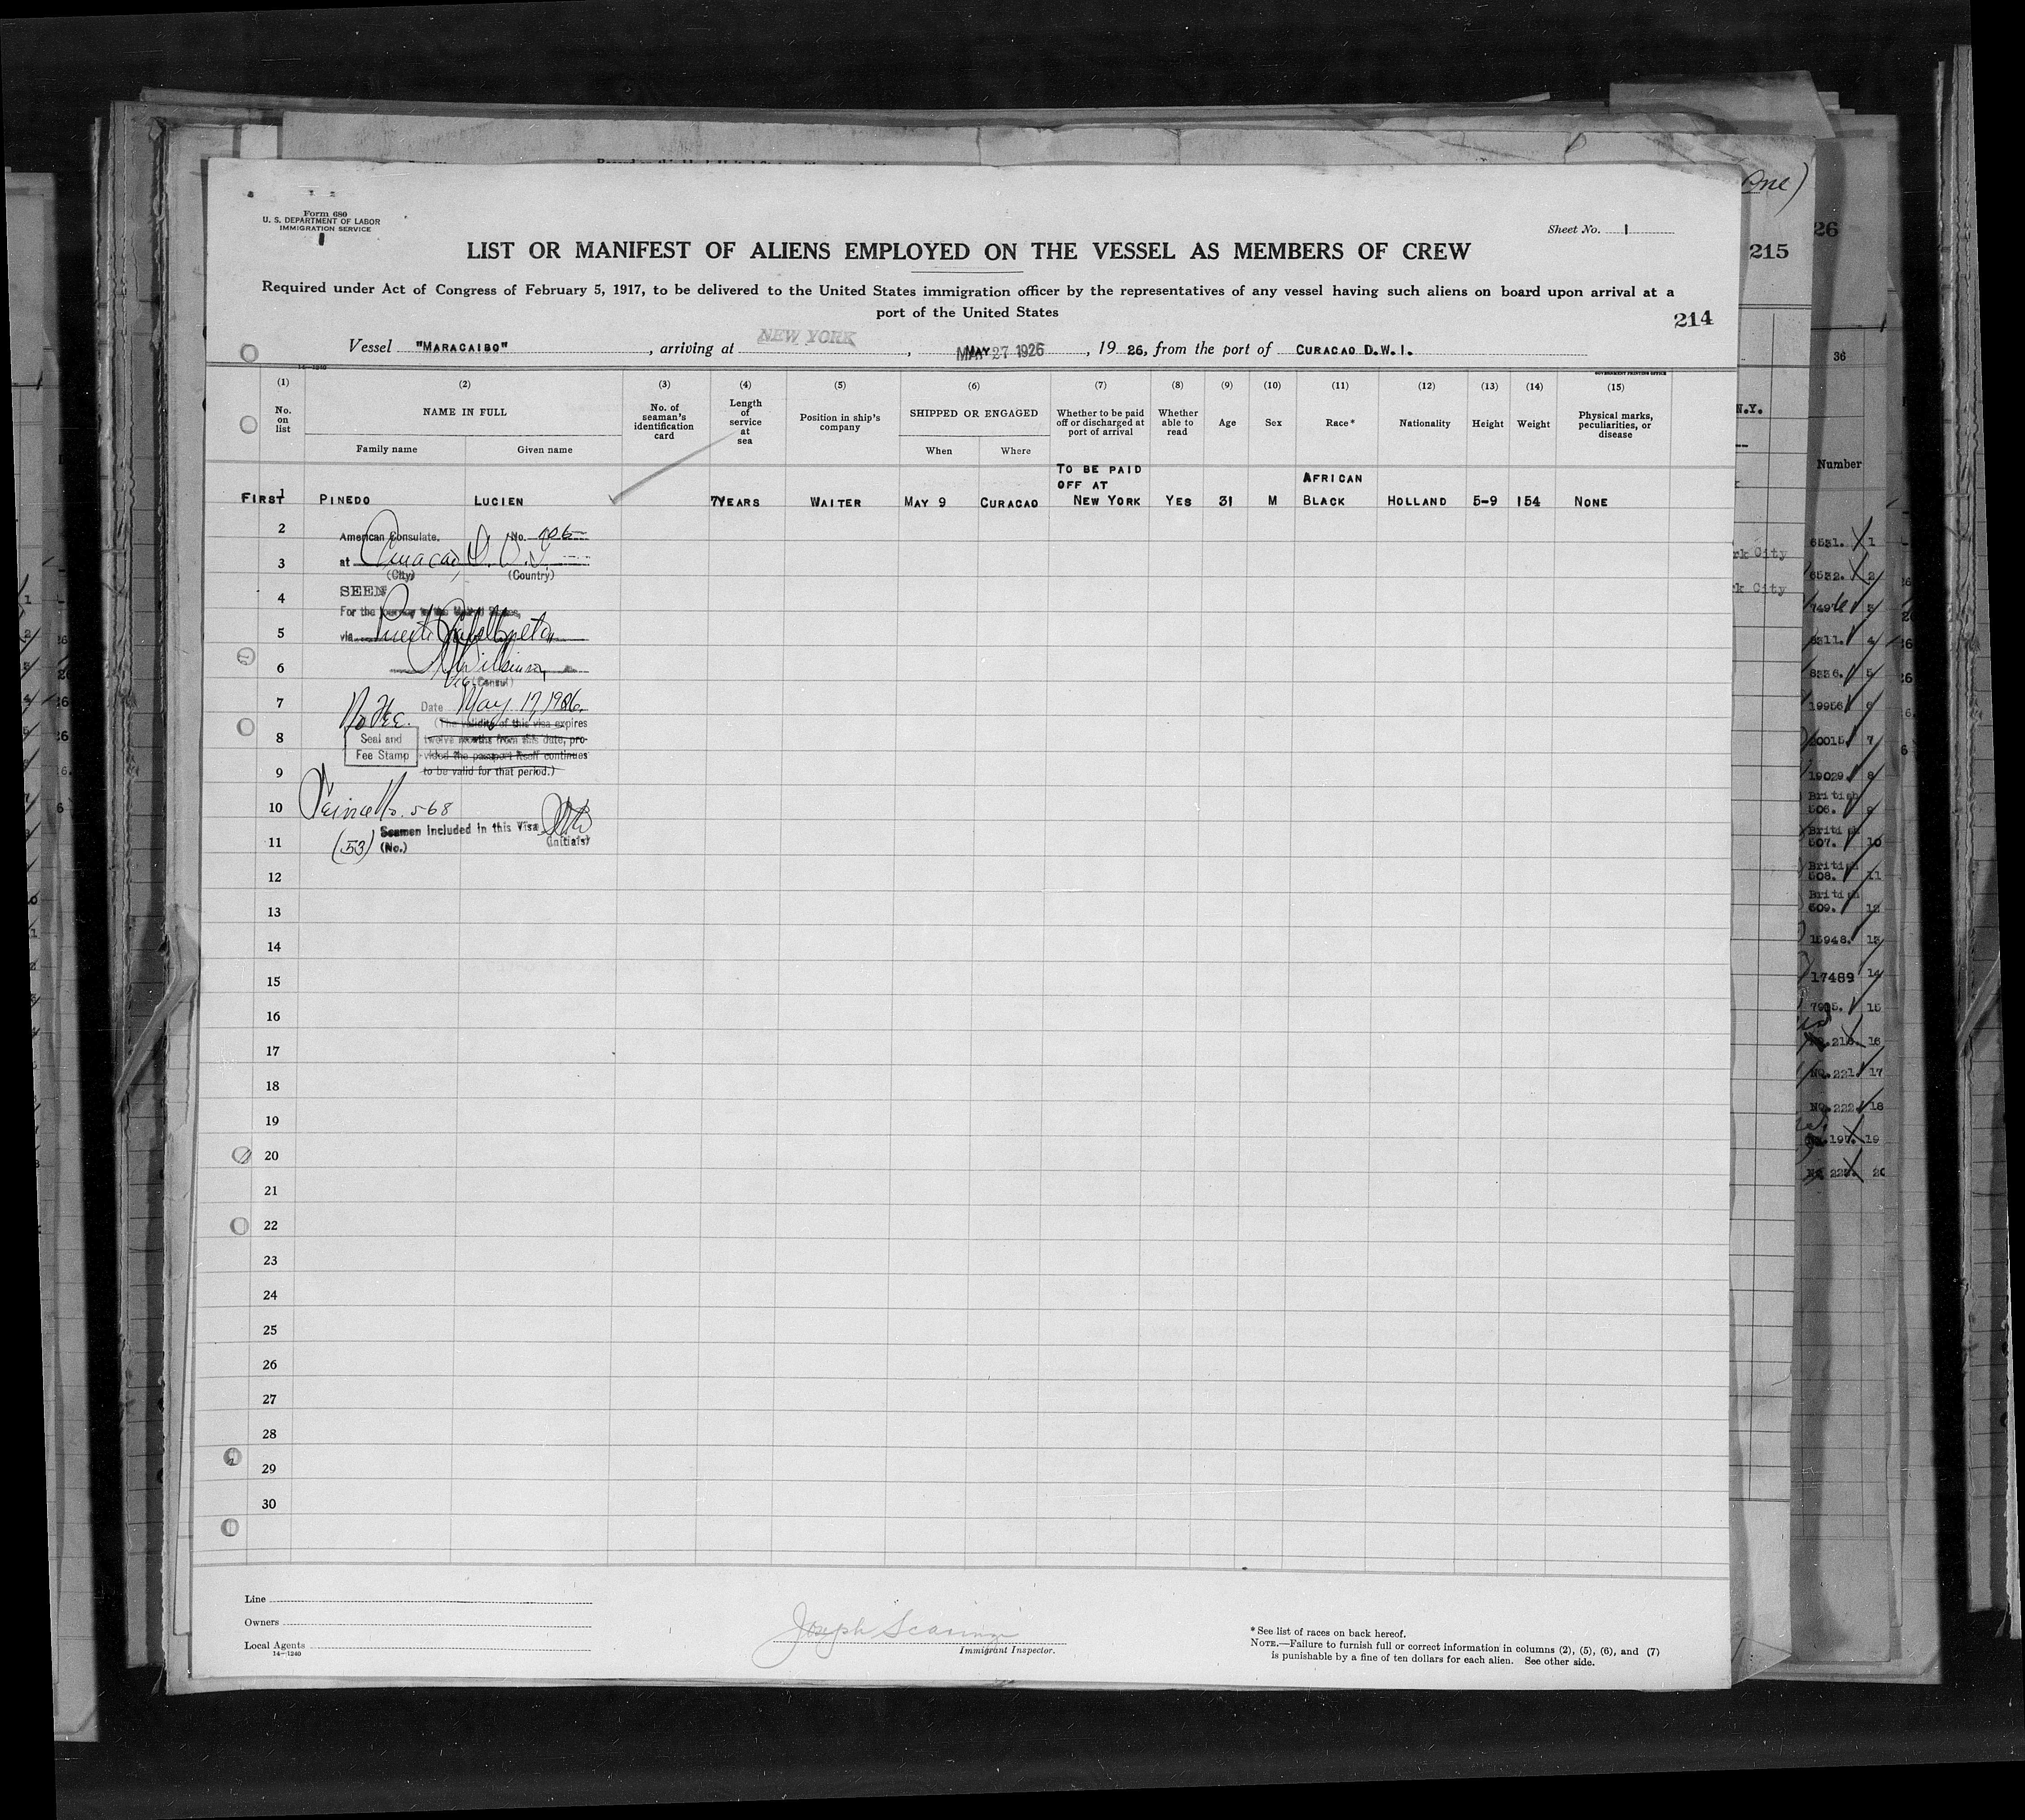 Form 680
U. S. DEPARTMENT OF LABOR
IMMIGRATION SERVICE
Sheet No. 1
LIST OR MANIFEST OF ALIENS EMPLOYED ON THE VESSEL AS MEMBERS OF CREW
Required under Act of Congress of February 5, 1917, to be delivered to the United States immigration officer by the representatives of any vessel having such aliens on board upon arrival at a
port of the United States
214
Vessel "MARACAIBO", arriving at NEW YORK, MAY 27 1926, 19 26, from the port of CURACAO D.W.I.
14-1240
GOVERNMENT PRINTING OFFICE
(1) (2) (3) (4) (5) (6) (7) (8) (9) (10) (11) (12) (13) (14) (15)
No. on list
NAME IN FULL
Family name Given name
No. of seaman's identification card
Length of service at sea
Position in ship's company
SHIPPED OR ENGAGED
When Where
Whether to be paid off or discharged at port of arrival
Whether able to read
Age
Sex
Race*
Nationality
Height
Weight
Physical marks, peculiarities, or disease
TO BE PAID
OFF AT
AFRICAN
FIRST 1 PINEDO LUCIEN 7YEARS WAITER MAY 9 CURACAO NEW YORK YES 31 M BLACK HOLLAND 5-9 154 NONE
2
American Consulate. No. 906
3
at Curacao, D. W. I.
(City) (Country)
4
SEEN
For the journey to the United States,
5
via Puerto Cabello
6
Wilkinson
Vice (Consul)
7
No Fee. Date May 17, 1926.
(The validity of this visa expires
8
Seal and
Fee Stamp
twelve months from this date, pro-
vided the passport itself continues
9
to be valid for that period.)
10
Service No. 568
Seamen Included in this Visa
11
(53) (No.) (Initials)
12
13
14
15
16
17
18
19
20
21
22
23
24
25
26
27
28
29
30
Line
Owners
Local Agents
14-1240
Joseph
Immigrant Inspector.
* See list of races on back hereof.
NOTE.—Failure to furnish full or correct information in columns (2), (5), (6), and (7)
is punishable by a fine of ten dollars for each alien. See other side.
One)
26
215
36
N.Y.
Number
rk City
rk City
6531. 1
6532. 2
3
4
8336. 5
19956 6
20015. 7
19029. 8
British
506. 9
British
507. 10
British
508. 11
British
509. 12
15948. 13
17489 14
15
16
No. 221. 17
No. 222. 18
19